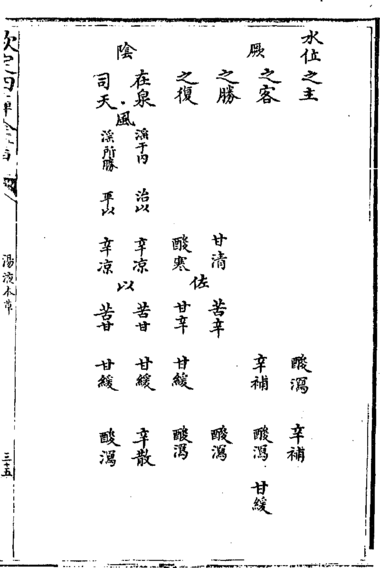 水位之主 酸瀉 辛補
厥
之客 辛補 酸瀉 甘緩
之勝 甘清 苦辛 酸瀉
佐
之復 酸寒 甘辛 甘緩 酸瀉
陰
在泉 淫于內 治以 辛凉 苦甘 甘緩 辛散
風 以
司天 淫所勝 平以 辛凉 苦甘 甘緩 酸瀉
欽定四庫全書
湯液本草
三十五